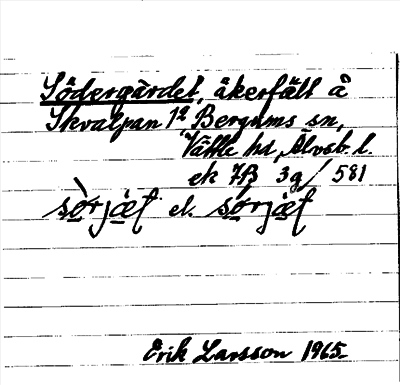 Södergärdet, åkerfält å
Skvalpan 1² Bergums sn,
Vättle hd, Älvsb. l.
ek 7B 3g/581
sòrjæ̀t el. sórjæ̀t
Erik Larsson 1965.